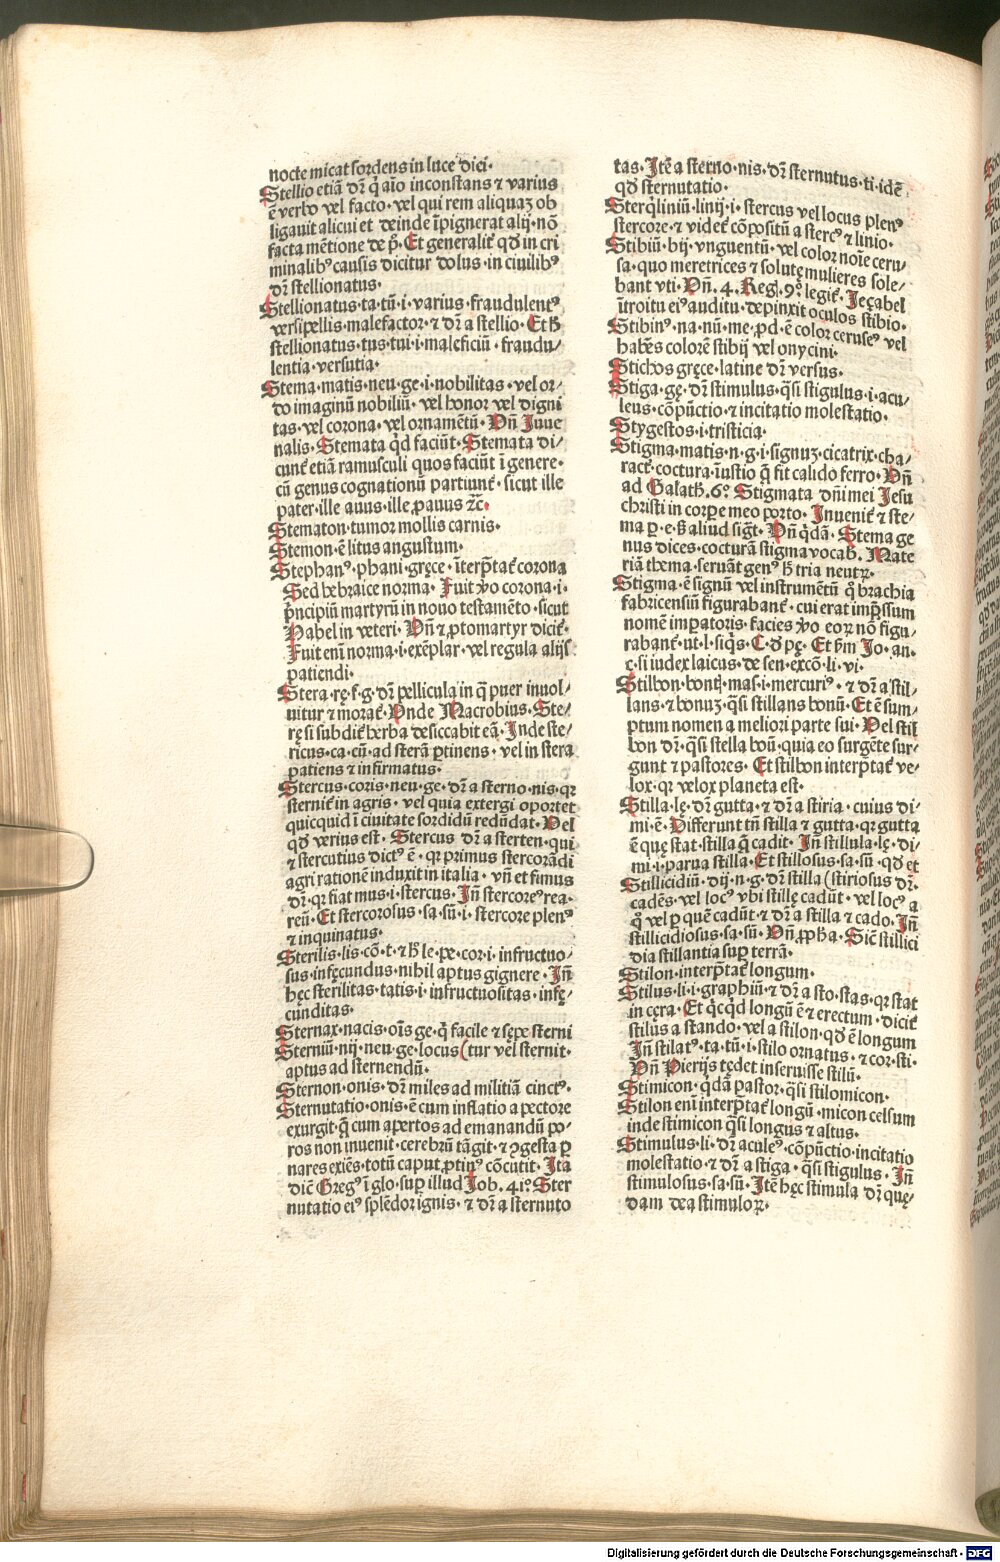 nocte micat sordens in luce diei·
Stellio etiā dr̄ q̇ aīo inconstans ⁊ varius
ē verbo vel facto· vel qui rem aliquaꝫ ob
ligauit alicui et deinde īpignerat alij· nō
facta mētione de p̄· Et generalit̄ qd̄ in cri
minalibꝰ causis dicitur dolus· in ciuilibꝰ
dr̄ stellionatus·
Stellionatus·ta·tū·i·varius·fraudulentꝰ
versipellis·malefactor·⁊ dr̄ a stellio· Et h̄
stellionatus·tus·tui·i·maleficiū·fraudu/
lentia·versutia·
Stema·matis·neu·ge·i·nobilitas·vel or/
do imaginū nobiliū· vel honor vel digni
tas·vel corona·vel ornamētū· Vn̄ Juue
nalis· Stemata qd̄ faciūt· Stemata di/
cunt̄ etiā ramusculi quos faciūt ī genere·
cū genus cognationū partiunt̄· sicut ille
pater·ille auus·ille ꝓauus ⁊c̄·
Stematon·tumor mollis carnis·
Stemon·ē litus angustum·
Stephanꝰ·phani·gręce·īterp̄tat̄ corona
Sed hebraice norma· Fuit v̊o corona·i·
p̄ncipiū martyrū in nouo testamēto·sicut
Habel in veteri· Vn̄ ⁊ ꝓtomartyr dicit̄·
Fuit enī norma·i·exēplar·vel regula alijs
patiendi·
Stera·rę·f·g·dr̄ pellicula in q̄ puer inuol/
uitur ⁊ morat̄· Vnde Macrobius· Ste/
rę si subdit̄ herba desiccabit eā· Inde ste/
ricus·ca·cū·ad sterā ꝑtinens· vel in stera
patiens ⁊ infirmatus·
Stercus·coris·neu·ge·dr̄ a sterno·nis·qꝛ
sternit̄ in agris· vel quia extergi oportet
quicquid ī ciuitate sordidū redūdat· Vel
qd̄ verius est· Stercus dr̄ a sterten·qui
⁊ stercutius dictꝰ ē·qꝛ primus stercorādi
agri rationē induxit in italia· vn̄ et fimus
dr̄·qꝛ fiat mus·i·stercus· Jn̄ stercoreꝰ rea·
reū· Et stercorosus·sa·sū·i·stercore plenꝰ
⁊ inquinatus·
Sterilis·lis·cō·t·⁊ h̄ le·pe·cor·i·infructuo/
sus·infęcundus·nihil aptus gignere· Jn̄
hęc sterilitas·tatis·i·infructuositas·infę/
cunditas·
Sternax·nacis·oīs ge·q̇ facile ⁊ sępe sterni
Sterniū·nij·neu·ge·locus (tur vel sternit·
aptus ad sternendū·
Sternon·onis·dr̄ miles ad militiā cinctꝰ·
Sternutatio·onis·ē cum inflatio a pectore
exurgit·q̄ cum apertos ad emanandū po/
ros non inuenit·cerebrū tāgit·⁊ ꝯgesta ꝑ
nares exiēs·totū caput ꝓtinꝰ cōcutit· Ita
dic̄ Gregꝰ ī glo·suꝑ illud Job·41°· Ster
nutatio eiꝰ splēdor ignis· ⁊ dr̄ a sternuto
tas· Itē a sterno·nis·dr̄ sternutus·ti·idē
qd̄ sternutatio·
Sterq̇liniū·linij·i·stercus vel locus plenꝰ
stercore·⁊ videt̄ cōpositū a stercꝰ ⁊ linio·
Stibiū·bij·vnguentū· vel color noīe ceru/
sa·quo meretrices ⁊ solutę mulieres sole/
bant vti· Vn̄· 4· Reg· 9° legit̄· Jeçabel
ītroitu eiꝰ auditu·depinxit oculos stibio·
Stibinꝰ·na·nū·me·ꝓd·ē color ceruseꝰ vel
habēs colorē stibij vel onycini·
Stichos gręce·latine dr̄ versus·
Stiga·gę·dr̄ stimulus·q̄si stigulus·i·acu/
leus·cōpūctio·⁊ incitatio molestatio·
Stygestos·i·tristicia·
Stigma·matis·n·g·i·signuꝫ·cicatrix·cha/
ract̄·coctura·īustio q̄ fit calido ferro· Vn̄
ad Galath·6° Stigmata dn̄i mei Jesu
christi in corꝑe meo porto· Inuenit̄ ⁊ ste/
ma ꝑ·e·s̄ aliud sigt̄· Vn̄ q̇dā· Stema ge
nus dices·cocturā stigma vocab̄· Mate
riā thema·seruāt genꝰ h̄ tria neutꝝ·
Stigma·ē signū vel instrumētū q̊ brachia
fabricensiū figurabant̄·cui erat imp̄ssum
nomē imꝑatoris·facies v̊o eoꝝ nō figu/
rabant̄·ut·l·siq̇s·C·d̄ pę· Et ẜm Jo·an·
ę·si iudex laicus·de sen·excō·li·vi·
Stilbon·bontꝭ·mas·i·mercuriꝰ·⁊ dr̄ a stil/
lans·⁊ bonuꝫ·q̄si stillans bonū· Et ē sum/
ptum nomen a meliori parte sui· Vel stil
bon dr̄·q̄si stella boū·quia eo surgēte sur/
gunt ⁊ pastores· Et stilbon interp̄tat̄ ve/
lox·qꝛ velox planeta est·
Stilla·lę·dr̄ gutta·⁊ dr̄ a stiria·cuius di/
mi·ē· Differunt tn̄ stilla ⁊ gutta·qꝛ gutta
ē quę stat·stilla q̄ cadit· Jn̄ stillula·lę·di/
mi·i·parua stilla· Et stillosus·sa·sū·qd̄ et
Stillicidiū·dij·n·g·dr̄ stilla (stiriosus dr̄·
cadēs·vel locꝰ vbi stillę cadūt·vel locꝰ a
q̊ vel ꝑ quē cadūt·⁊ dr̄ a stilla ⁊ cado· Jn̄
stillicidiosus·sa·sū· Vn̄ ꝓph̄a· Sic̄ stillici
dia stillantia suꝑ terrā·
Stilon·interp̄tat̄ longum·
Stilus·li·i·graphiū·⁊ dr̄ a sto·stas·qꝛ stat
in cęra· Et q̇cq̇d longū ē ⁊ erectum·dicit̄
stilus a stando·vel a stilon·qd̄ ē longum
Jn̄ stilatꝰ·ta·tū·i·stilo ornatus·⁊ cor·sti·
Vn̄ Pierijs tędet inseruisse stilū·
Stimicon·q̇dā pastor·q̄si stilomicon·
Stilon enī interp̄tat̄ longū·micon celsum
inde stimicon q̄si longus ⁊ altus·
Stimulus·li·dr̄ aculeꝰ·cōpūctio·incitatio
molestatio·⁊ dr̄ a stiga·q̄si stigulus· Jn̄
stimulosus·sa·sū· Itē hęc stimula dr̄ quę/
dam dea stimuloꝝ·
Digitalisierung gefördert durch die Deutsche Forschungsgemeinschaft - DFG